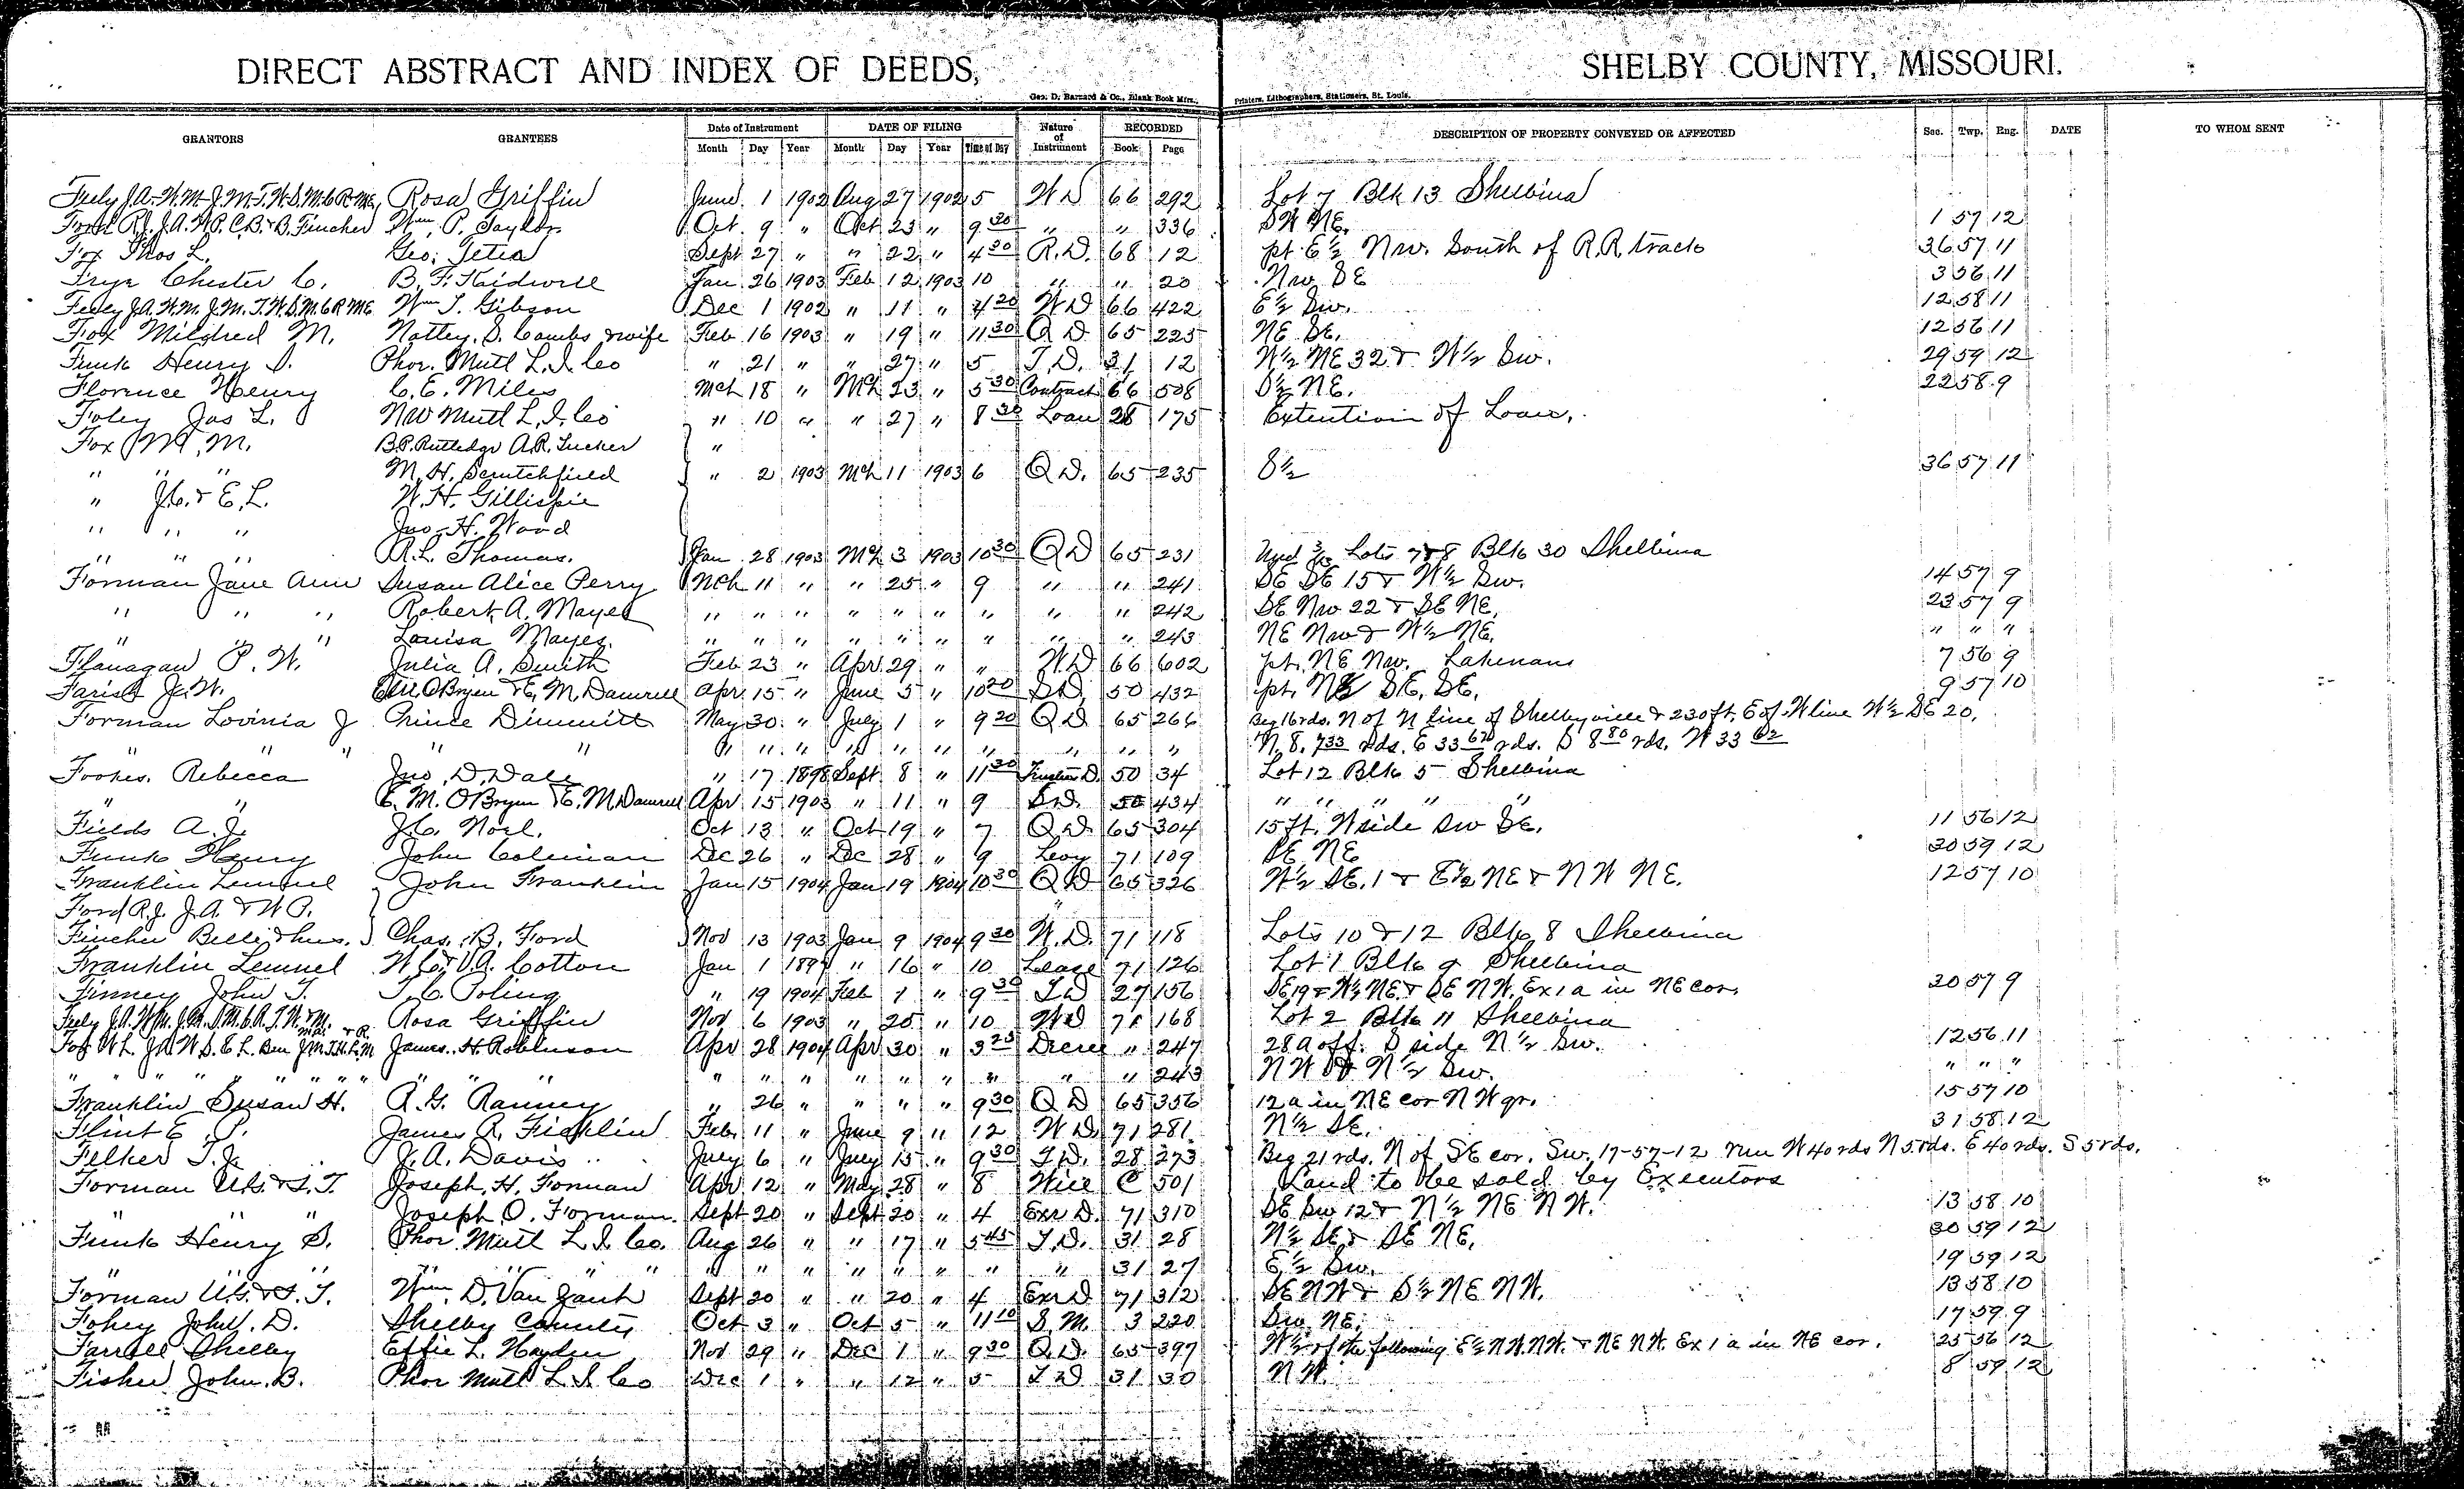 DIRECT ABSTRACT AND INDEX OF DEEDS, SHELBY COUNTY, MISSOURI.
Geo. D. Barnard & Co., Blank Book Mfrs., Printers, Lithographers, Stationers, St. Louis.
GRANTORS GRANTEES Date of Instrument DATE OF FILING Nature of Instrument RECORDED DESCRIPTION OF PROPERTY CONVEYED OR AFFECTED Sec. Twp. Rng. DATE TO WHOM SENT
Month Day Year Month Day Year Time of Day Book Page
Feely J.A. W.M. J.M. T.W. S.M. C.R. M.E. Rosa Griffin June 1 1902 Aug 27 1902 5 W D 66 292 Lot 7 Blk 13 Shelbina
Ford R.J. J.A. W.P. C.B. & B. Fincher Wm. P. Taylor Oct. 9 " Oct 23 " 9 30 " " 336 SW NE. 1 57 12
Fox Thos L. Geo. Tetia Sept 27 " " 22 " 4 30 R.D. 68 12 pt E½ Nw. South of R.R. track 36 57 11
Frye Chester C. B. F. Kidwell Jan 26 1903 Feb 12 1903 10 " " 20 Nw SE 3 56 11
Feely J.A. W.M. J.M. T.W. S.M. C.R. M.E. Wm T. Gibson Dec 1 1902 " 11 " 4 20 W D 66 422 E½ Sw. 12 58 11
Fox Mildred M. Nattey S. Combs & wife Feb 16 1903 " 19 " 11 30 Q D 65 225 NE SE. 12 56 11
Funk Henry S. Phor. Mutl L. I. Co " 21 " " 27 " 5 T. D. 31 12 W½ NE 32 & W½ Sw. 29 59 12
Florence Henry C. E. Miles Mch 18 " Mch 23 " 5 30 Contract 66 508 S½ NE. 22 58 9
Foley Jas L. NW Mutl L. I. Co " 10 " " 27 " 8 30 Loan 28 175 Extention of Loan.
Fox M. M. B.P. Rutledge A.R. Tucker "
" " " M. H. Scrutchfield " 2 1903 Mch 11 1903 6 Q D. 65 235 S½ 36 57 11
" J.C. & E.L. W. H. Gillispie
" " " Jno. H. Wood
" " " R.L. Thomas. Jan 28 1903 Mch 3 1903 10 30 Q D 65 231 Lots 7 & 8 Blk 30 Shelbina
Forman Jane Ann Susan Alice Perry Mch 11 " " 25 " 9 " " 241 SE SE 15 & W½ Sw. 14 57 9
" " " Robert A. Mayes " " " " " " " " " 242 SE Nw 22 & SE NE. 23 57 9
" " " Louisa Mayes. " " " " " " " " " 243 NE Nw & W½ NE. " " "
Flanagan P. W. Julia A. Smith Feb 23 " Apr 29 " " W.D 66 602 pt. NE Nw. Lakenan 7 56 9
Farish J.W. O'Bryen & E. M. Damrell Apr 15 " June 5 " 10 20 S.D. 50 432 pt. SE. SE. 9 57 10
Forman Lovinia J Prince Dimmitt May 30 " July 1 " 9 20 Q D 65 266 Beg 16 rds. N of N line of Shelbyville & 230 ft. E of W line W½ SE 20.
" " " " " " " " " " " " " " " " N. 8. 7 33 rds. E 33 62 rds. S 8 80 rds. W 33 62
Fookes. Rebecca Jno. D. Dale " 17 1898 Sept 8 " 11 30 Trustees D. 50 34 Lot 12 Blk 5 Shelbina
" " E. M. O'Bryen & E. M. Damrell Apr 15 1903 " 11 " 9 S.D. 50 434 " " " " "
Fields A. J. J.C. Noel. Oct 13 " Oct 19 " 7 Q D. 65 304 15 ft. W side Sw SE. 11 56 12
Funk Henry John Coleman Dec 26 " Dec 28 " 9 Levy 71 109 SE NE 30 59 12
Franklin Lemuel John Franklin Jan 15 1904 Jan 19 1904 10 30 Q D 65 326 W½ SE. 1 & E½ NE & NW NE. 12 57 10
Ford R.J. J.A. & W.P.
Fincher Belle & hus. Chas. B. Ford Nov 13 1903 Jan 9 1904 9 30 W. D. 71 118 Lots 10 & 12 Blk 8 Shelbina
Franklin Lemuel W.C. & V.A. Cotton Jan 1 189 " 16 " 10 Lease 71 126 Lot 1 Blk 9 Shelbina
Finney John T. T. C. Poling " 19 1904 Feb 1 " 9 30 T D 27 156 SE 19 & W½ NE. & SE NW. Ex 1 a in NE cor. 20 57 9
Feely J.A. W.M. J.M. S.M. C.A. T.W. & M. Rosa Griffin Nov 6 1903 " 25 " 10 WD 71 168 Lot 2 Blk 11 Shelbina
Fox W L. J.A. W S. E L. Ben J.M. T.H. L.M James. H. Robinson Apr 28 1904 Apr 30 " 3 25 Decree " 247 28 a off. S side N½ Sw. 12 56 11
" " " " " " " " " " " " " " " " " " 243 N W N½ Sw. " " "
Franklin Susan H. R. G. Ranney " 26 " " " " 9 30 Q D 65 356 12 a in NE cor NW qr. 15 57 10
Flint E. P. James R. Ficklin Feb. 11 " June 9 " 12 W D. 71 281 N½ SE. 31 58 12
Felker T. J. J. A. Davis July 6 " July 15 " 9 30 T D. 28 273 Beg 21 rds. N of SE cor. Sw. 17-57-12 run W 40 rds N 5 rds. E 40 rds. S 5 rds.
Forman U.S. & S. T. Joseph. H. Forman Apr 12 " May 28 " 8 Will C 501 Land to be sold by Executors
" " " Joseph O. Forman. Sept 20 " Sept 20 " 4 Exr D. 71 310 SE Sw 12 & N½ NE NW. 13 58 10
Funk Henry S. Phor. Mutl L I. Co. Aug 26 " " 17 " 5 45 T. D. 31 28 N½ SE & SE NE. 30 59 12
" " " " " " " " " " " " " " 31 27 E½ Sw. 19 59 12
Forman U.S. & S. T. Wm. D. Van Zant Sept 20 " " 20 " 4 Exr D 71 312 SE NW & S½ NE NW. 13 58 10
Fohey John. D. Shelby County Oct 3 " Oct 5 " 11 10 S. M. 3 220 Sw. NE. 17 59 9
Farrell Shelby Effie L. Hayden Nov 29 " Dec 1 " 9 30 Q.D. 65 397 W½ of the following E½ NW. NW. & NE NW. Ex 1 a in NE cor. 25 56 12
Fisher John. B. Phor Mutl L. I. Co Dec 1 " " 12 " 5 T D 31 30 N W. 8 59 12